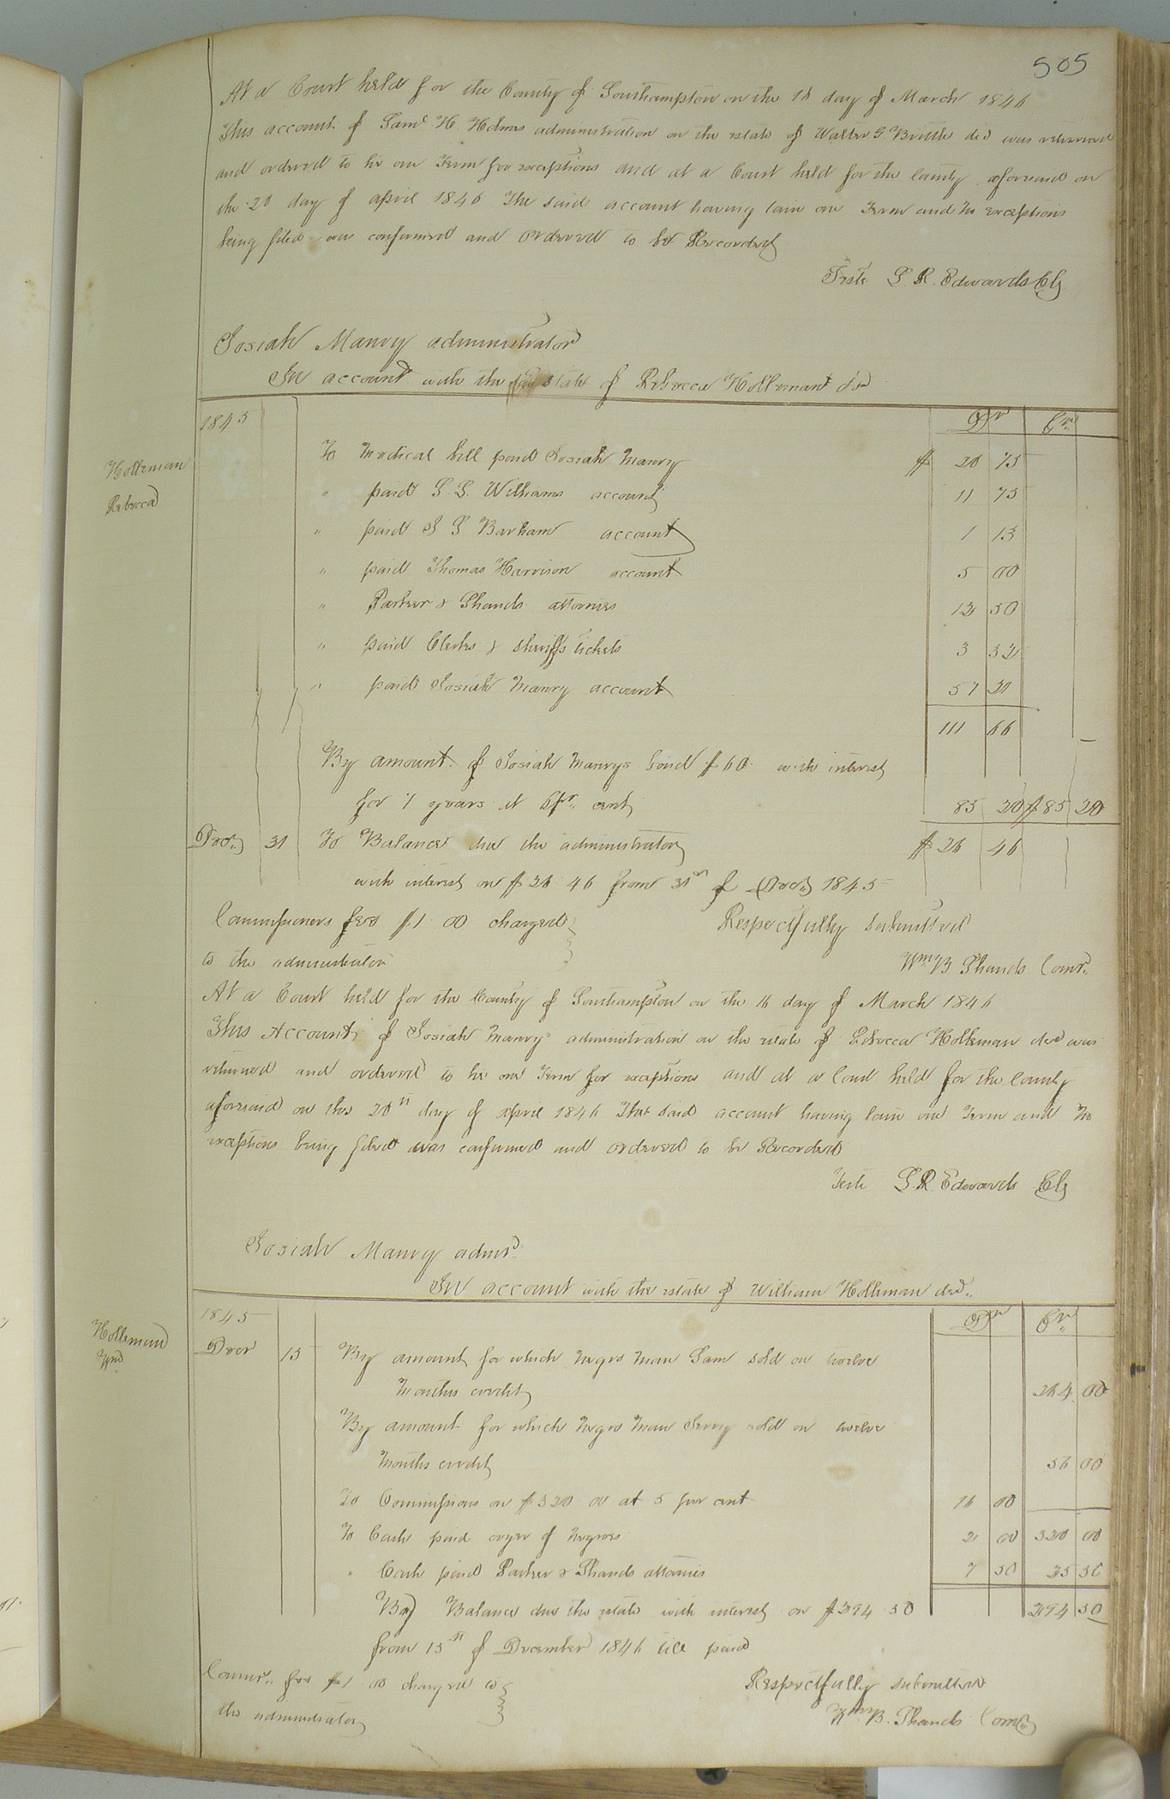 505
At a Court held for the County of Southampton on the 16 day of March 1846
This account of Saml H Holmes administration on the estate of Walter G Brittle decd was returned
and ordered to lie one Term for exceptions and at a Court held for the County aforesaid on
the 20 day of april 1846 The said account having lain one Term and No exceptions
being filed was confirmed and Ordered to be Recorded
Teste L. R. Edwards Clk
Josiah Manry administrator
In account with the estate of Rebecca Holleman decd
1845 Dr Cr
Holleman
Rebecca
To Medical bill paid Josiah Manry $ 20 75
" paid account 11 75
" paid Barham account 1 13
" paid Thomas Harrison account 5 00
" Parker & Shands attornies 12 50
" paid Clerks & sheriffs tickets 3 32
" paid Josiah Manry account 57 30
111 66
By amount of Josiah Manrys bond $60 with interest
for 7 years at 6 pr cent 85 20 $85 20
Decr 31 To Balance due the administrator $26 46
with interest on $26 46 from 31st of Decr 1845
Commissioners fees $1 00 charged
to the administrator
Respectfully submitted
Wm B Shands Comr.
At a Court held for the County of Southampton on the 16 day of March 1846
This Account of Josiah Manrys administration on the estate of Rebecca Holleman decd was
returned and ordered to lie one Term for exceptions and at a Court held for the County
aforesaid on the 20th day of april 1846 That said account having lain one Term and No
exceptions being filed was confirmed and ordered to be Recorded
Teste L. R. Edwards Clk
Josiah Manry admr.
In account with the estate of William Holleman decd.
1845 Dr Cr
Holleman
Wm
Decr 15 By amount for which Negro Man Sam sold on twelve
Months credit 264 00
By amount for which Negro Man sold on twelve
Months credit 56 00
To Commissions on $320 00 at 5 per cent 16 00
To Cash paid cryer of Negroes 2 00 320 00
" Cash paid Parker & Shands attornies 7 50 25 50
By Balance due the estate with interest on $294 50 294 50
from 15th of December 1846 till paid
Comrs. fees $1 00 charged to
the administrator
Respectfully submitted
Wm B. Shands Comr